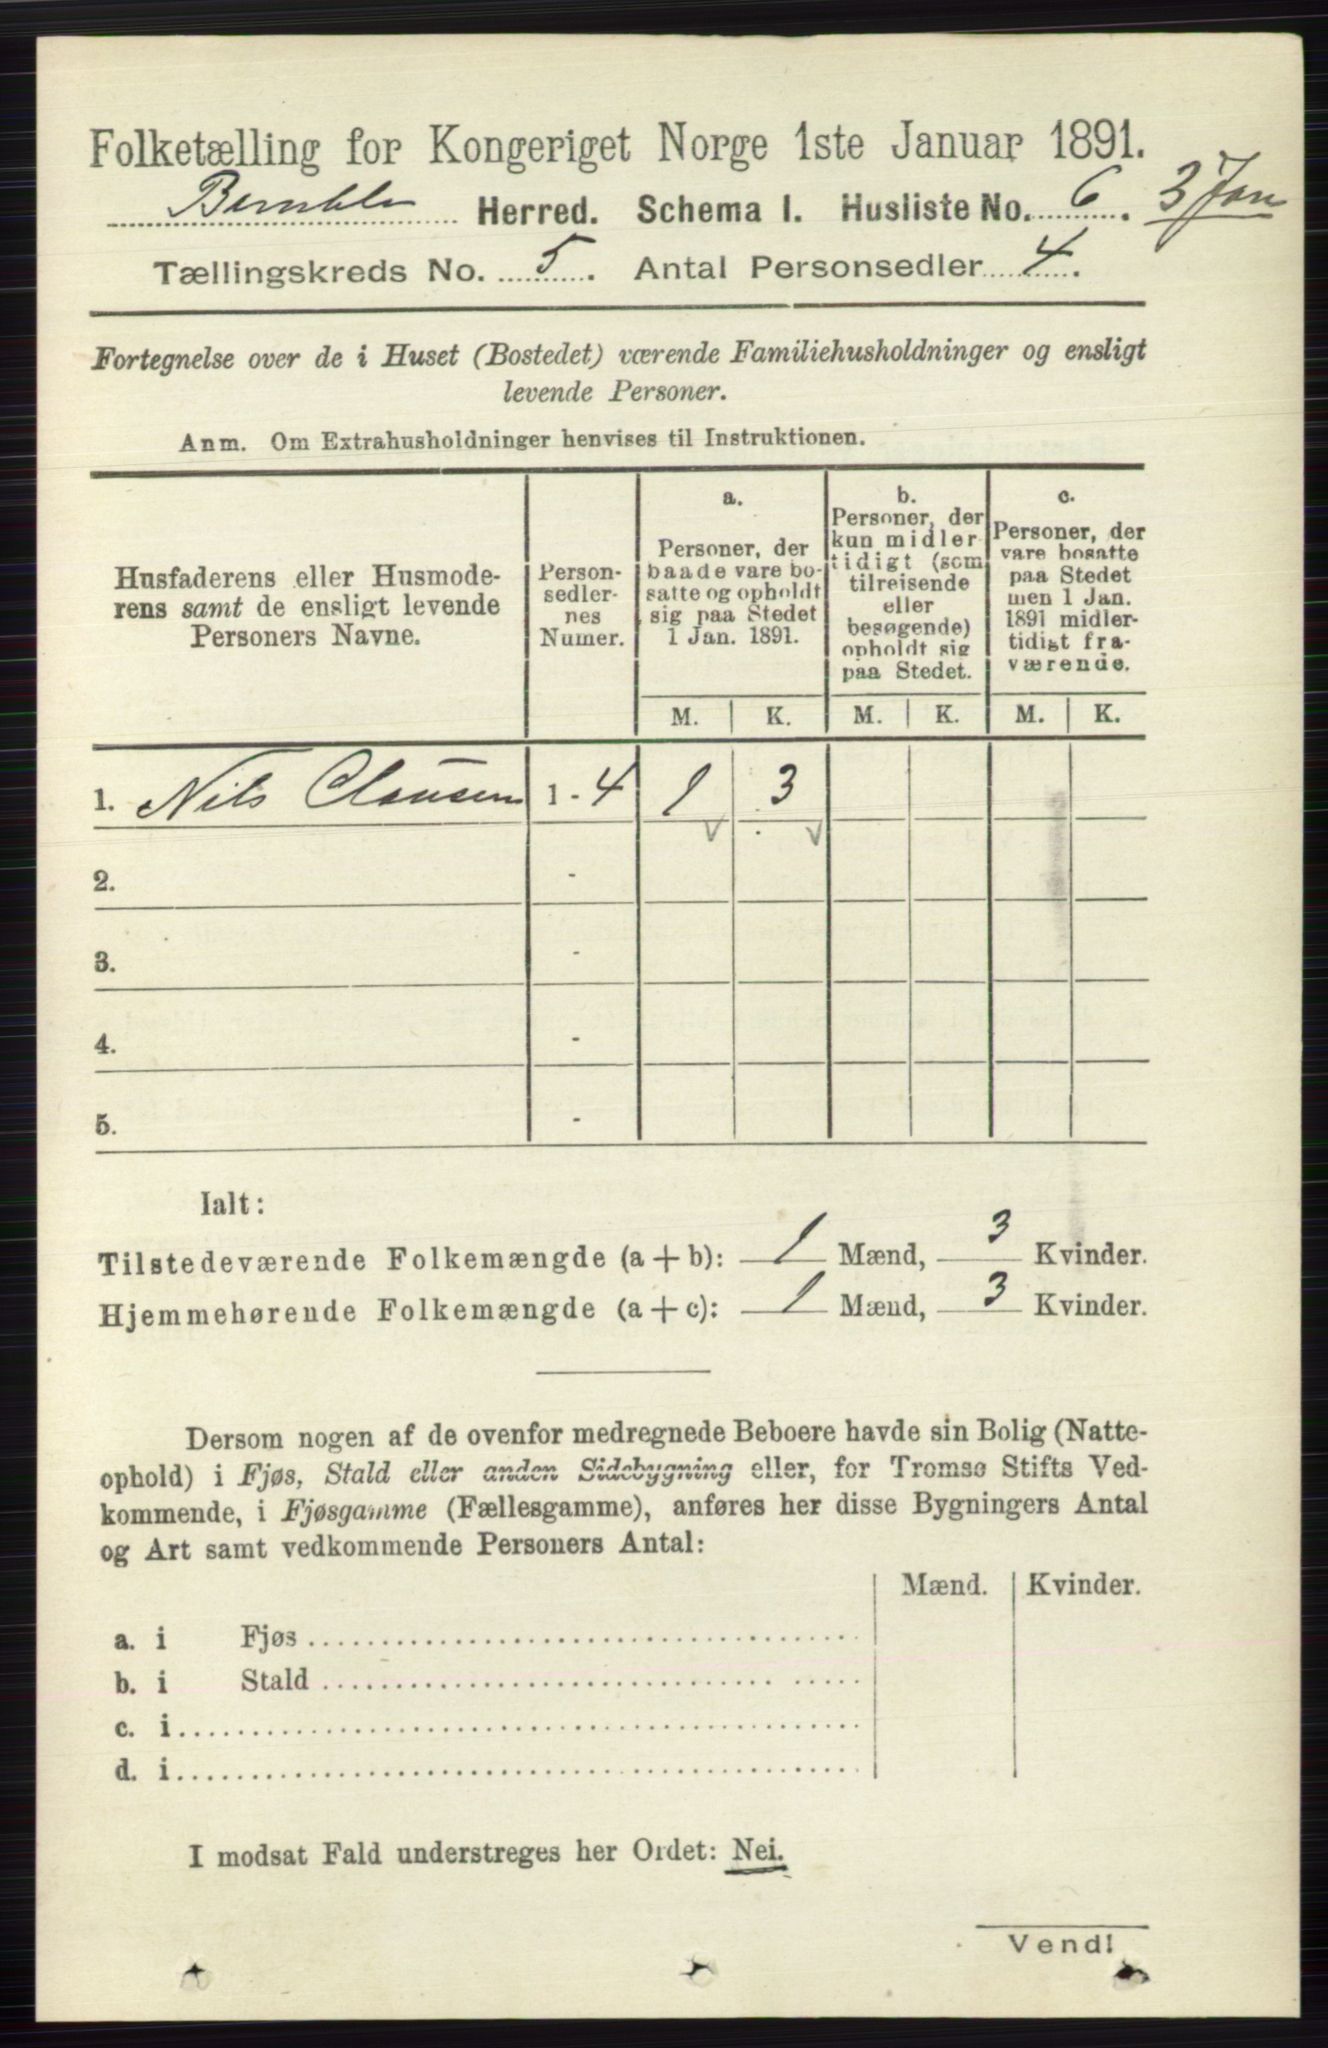 Folketælling for Kongeriget Norge 1ste Januar 1891.
Bemble Herred. Schema I. Husliste No. 6. 3 Jan
Tællingskreds No. 5. Antal Personsedler 4.
Fortegnelse over de i Huset (Bostedet) værende Familiehusholdninger og ensligt
levende Personer.
Anm. Om Extrahusholdninger henvises til Instruktionen.
Husfaderens eller Husmode-
rens samt de ensligt levende
Personers Navne.
Person-
sedler-
nes
Numer.
a.
Personer, der
baade vare bo-
satte og opholdt
sig paa Stedet
1 Jan. 1891.
b.
Personer, der
kun midler-
tidigt (som
tilreisende
eller
besøgende)
opholdt sig
paa Stedet.
c.
Personer, der
vare bosatte
paa Stedet
men 1 Jan.
1891 midler-
tidigt fra-
værende.
M. K. M. K. M. K.
1. Nils Clausen 1 - 4 1 3
2. -
3. -
4. -
5. -
Ialt:
Tilstedeværende Folkemængde (a + b): 1 Mænd, 3 Kvinder.
Hjemmehørende Folkemængde (a + c): 1 Mænd, 3 Kvinder.
Dersom nogen af de ovenfor medregnede Beboere havde sin Bolig (Natte-
ophold) i Fjøs, Stald eller anden Sidebygning eller, for Tromsø Stifts Ved-
kommende, i Fjøsgamme (Fællesgamme), anføres her disse Bygningers Antal
og Art samt vedkommende Personers Antal:
Mænd. Kvinder.
a. i Fjøs
b. i Stald
c. i
d. i
I modsat Fald understreges her Ordet: Nei.
Vend!